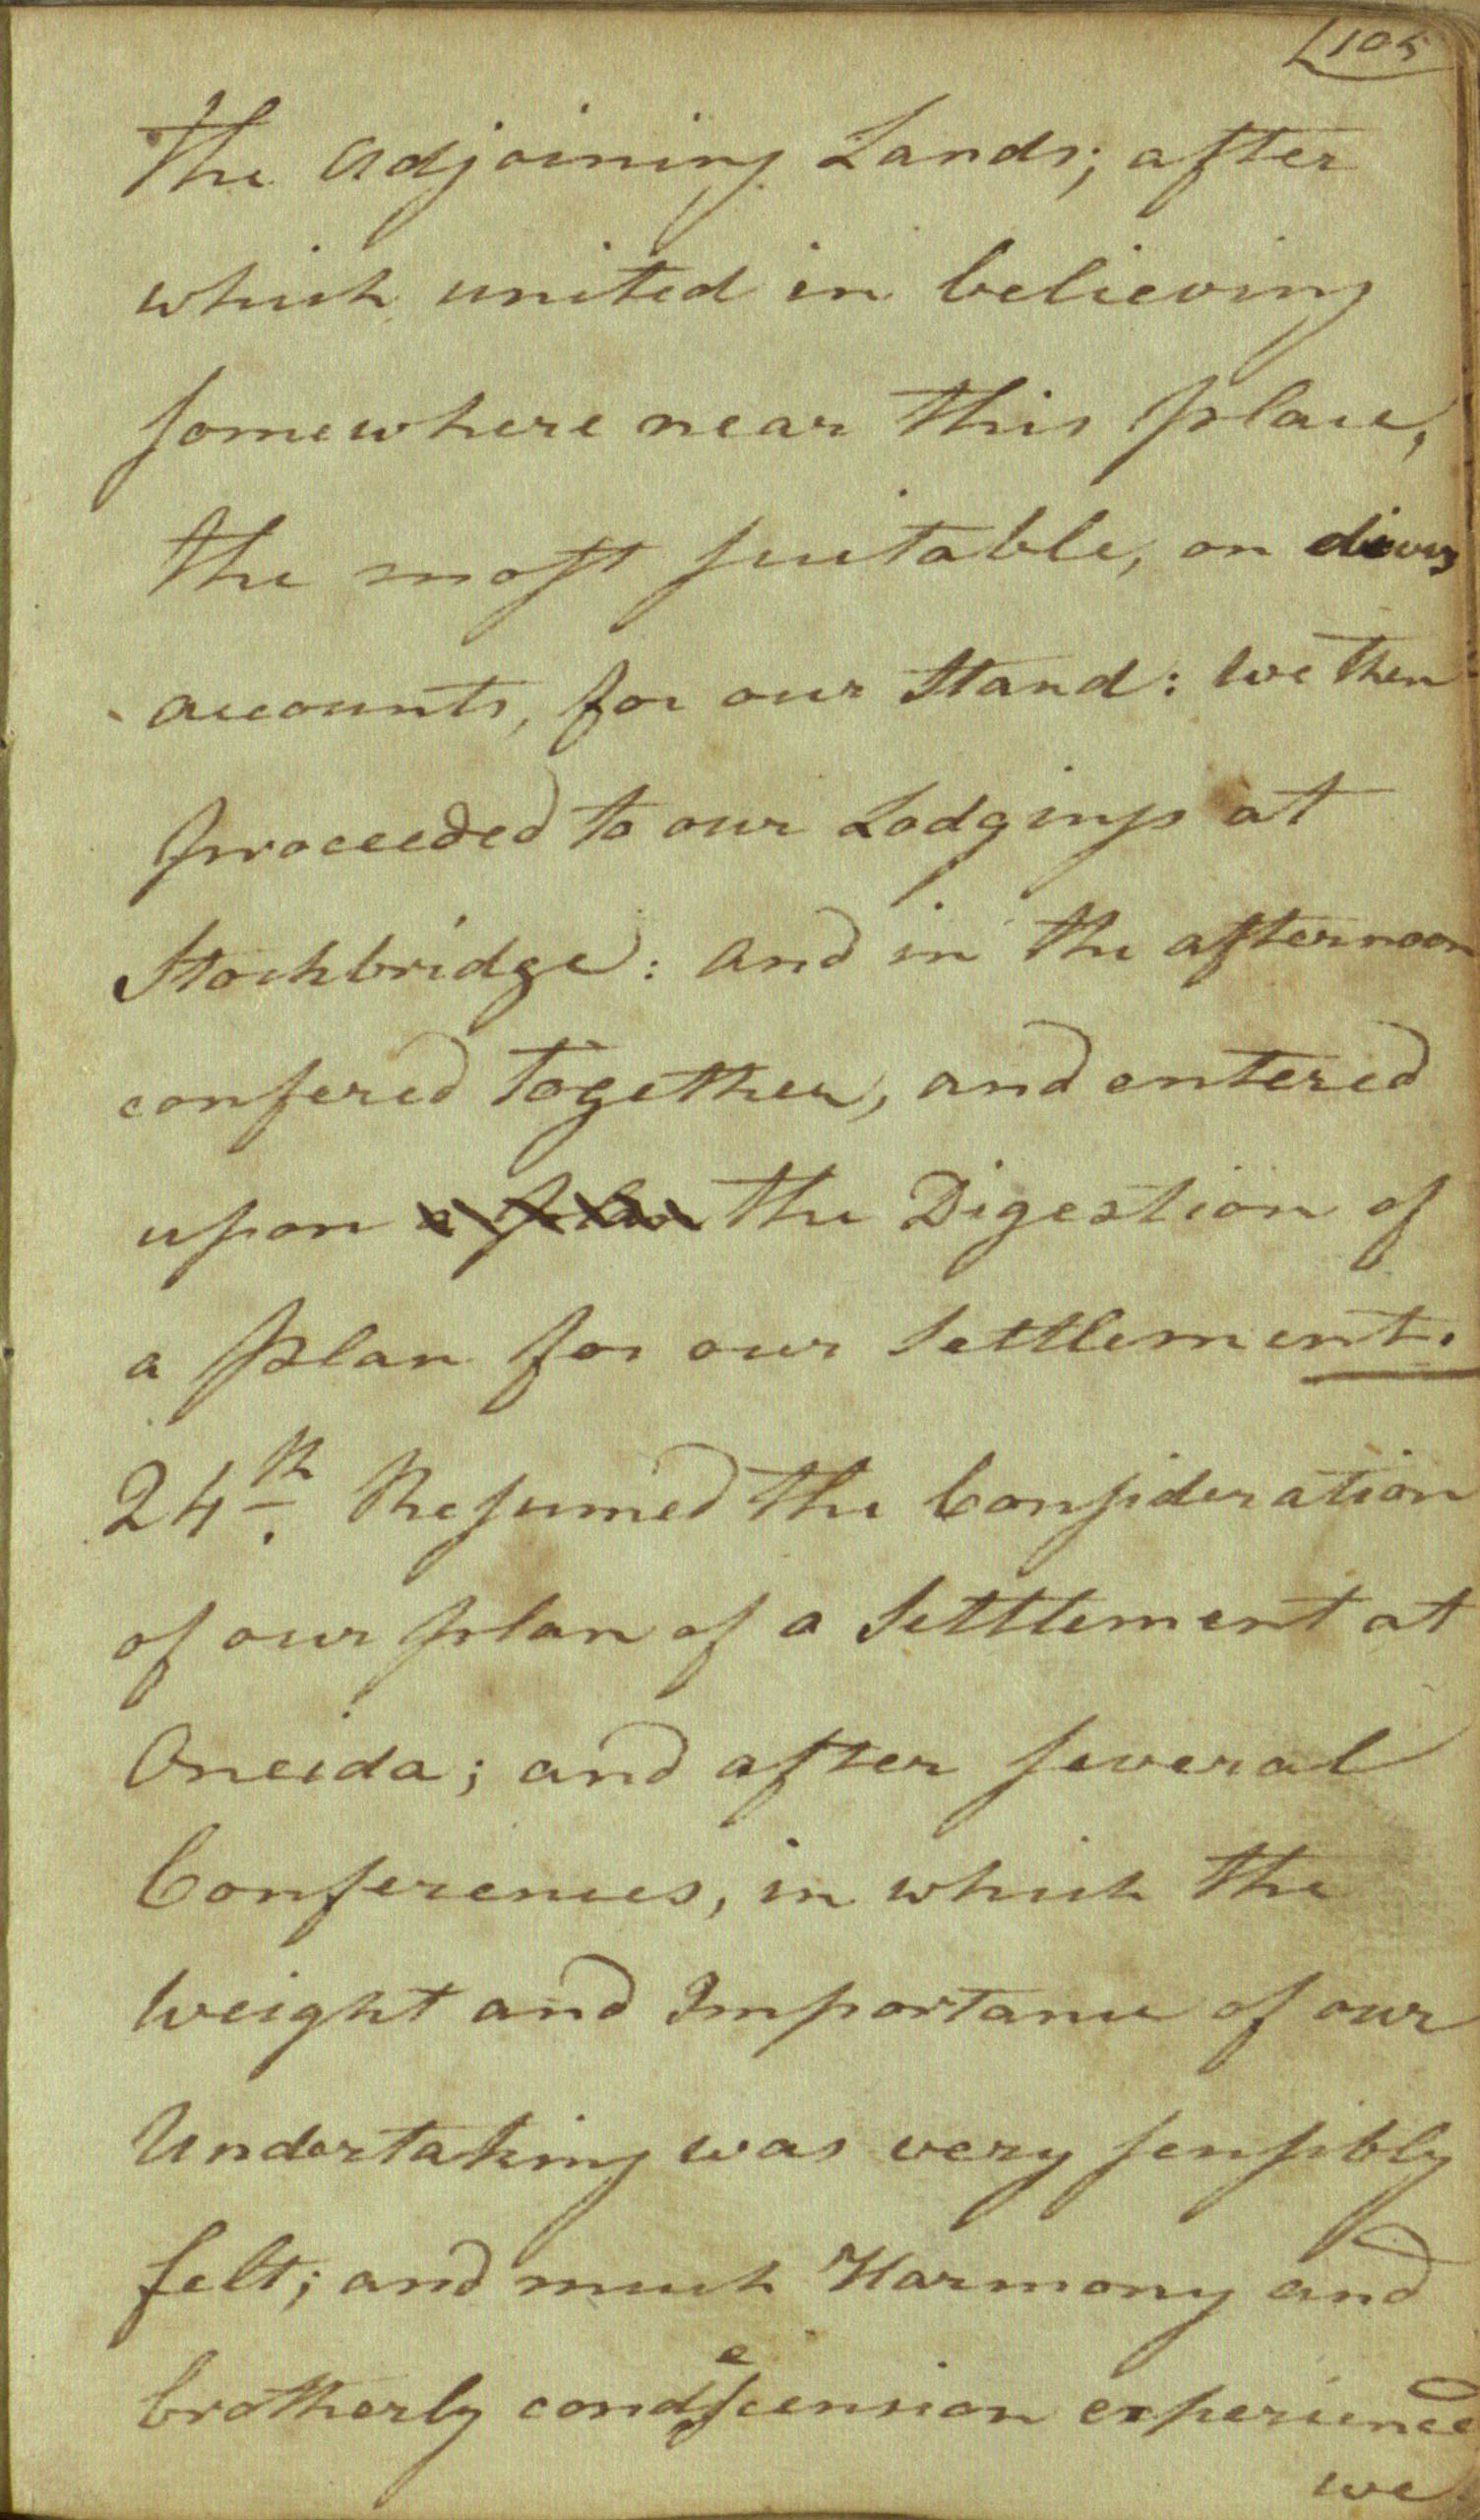 105
The adjoining Lands; after
which united in believing
somewhere near this place,
the most suitable, on divers
accounts, for our Stand: We then
proceeded to our Lodgings at
Stockbridge: and in the afternoon
confered together, and entered
upon a plan the Digestion of
a plan for our Settlement.
24th. Resumed the Consideration
of our plan of a Settlement at
Oneida; and after several
Conferences, in which the
Weight and Importance of our
Undertaking was very sensibly
felt; and much Harmony and
brotherly condescension experienced
we